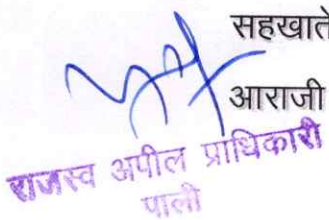 सहखाते
आराजी
राजस्व अपील प्राधिकारी
पाली